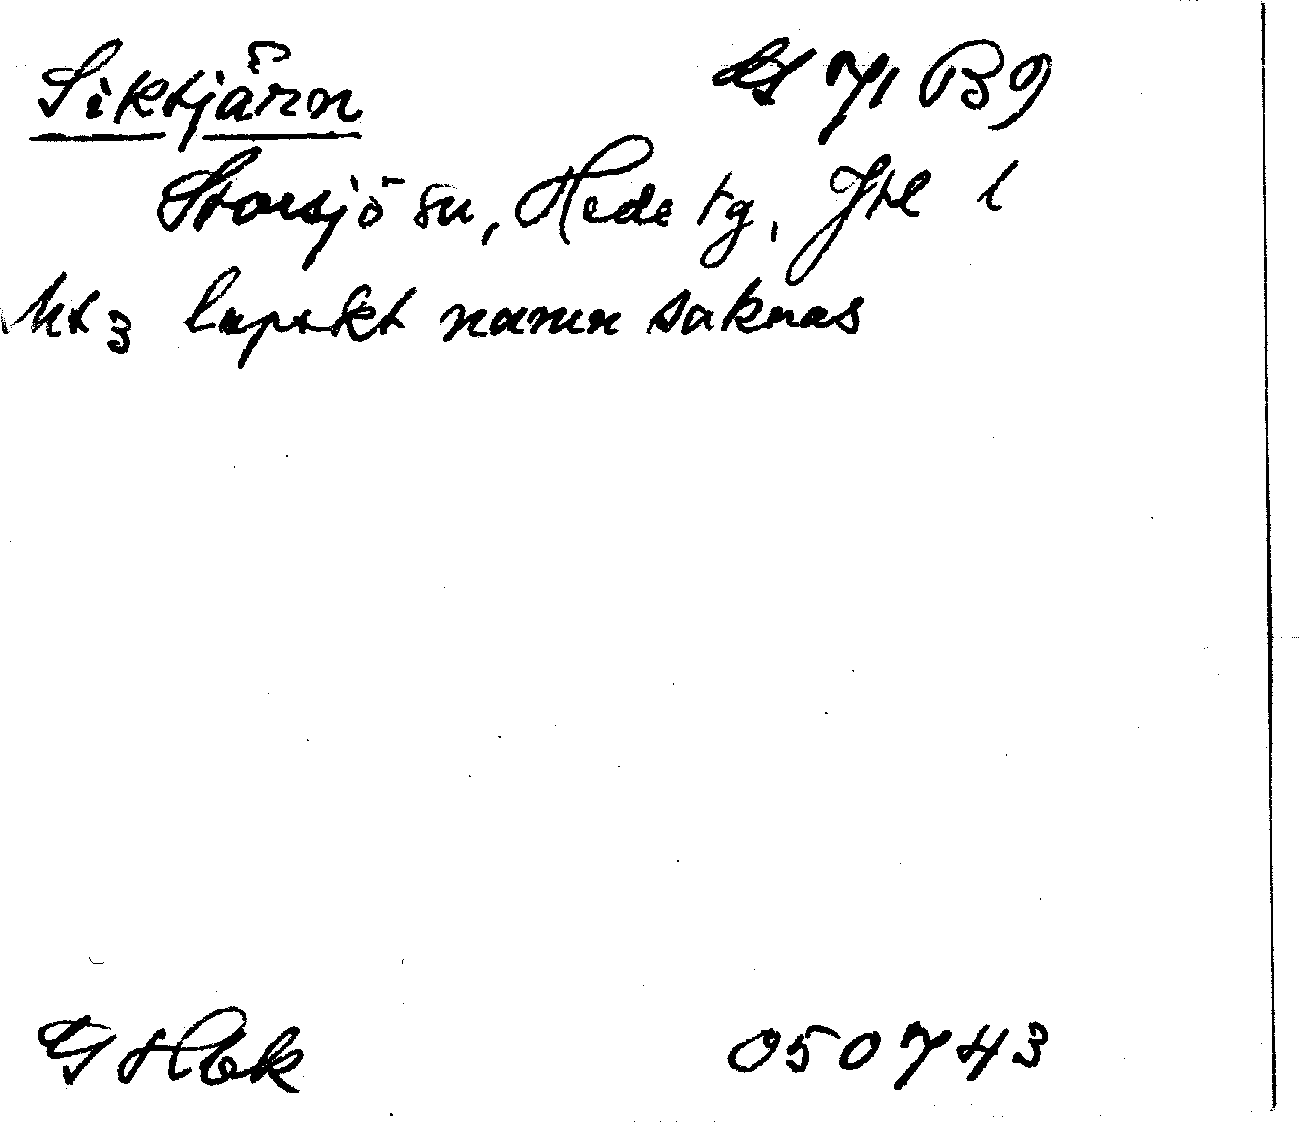 Siktjärn 71 B9
Storsjö sn, Hede tg, Jtl l
Nt 3 lapskt namn saknas
G Hbk 050743